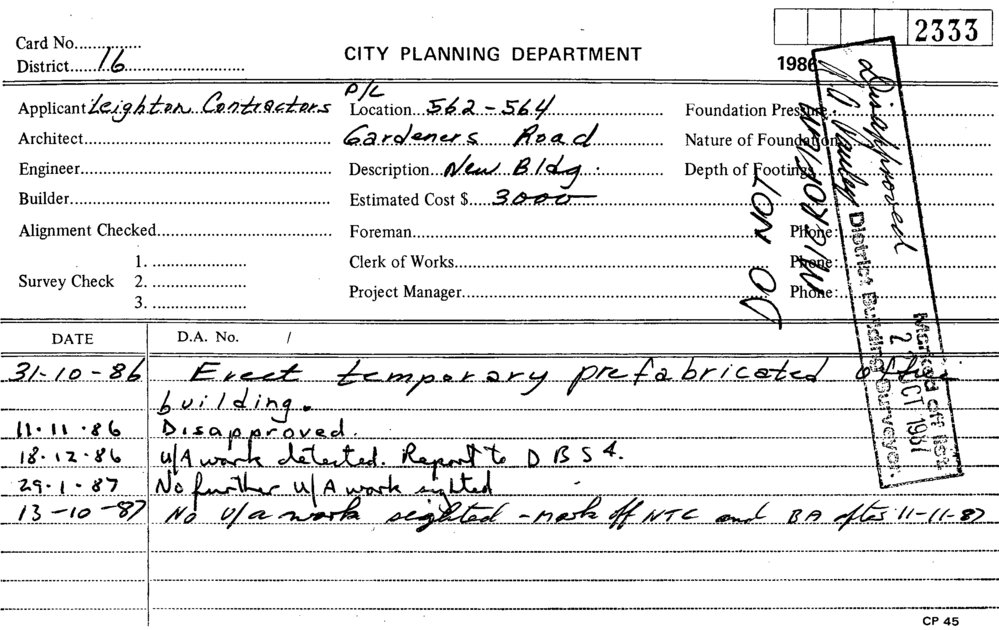 2333
Card No.
District 16
CITY PLANNING DEPARTMENT
1986
Applicant Leighton Contractors P/L
Location 562-564
Foundation Pressure
Architect
Gardeners Road
Nature of Foundations
Engineer
Description New Bldg.
Depth of Footings
Builder
Estimated Cost $ 3000
Alignment Checked
Foreman
Phone:
Survey Check
1.
2.
3.
Clerk of Works
Phone:
Project Manager
Phone:
DO NOT
MICROFILM
Disapproved
District Building Surveyor.
Marked off list
OCT 1987
DATE
D.A. No. /
31-10-86 Erect temporary prefabricated office
building.
11.11.86 Disapproved.
18.12.86 U/A work detected. Report to DBS 4.
29.1.87 No further U/A work sighted
13-10-87 No U/a work sighted - mark off NTC and BA after 11-11-87
CP 45